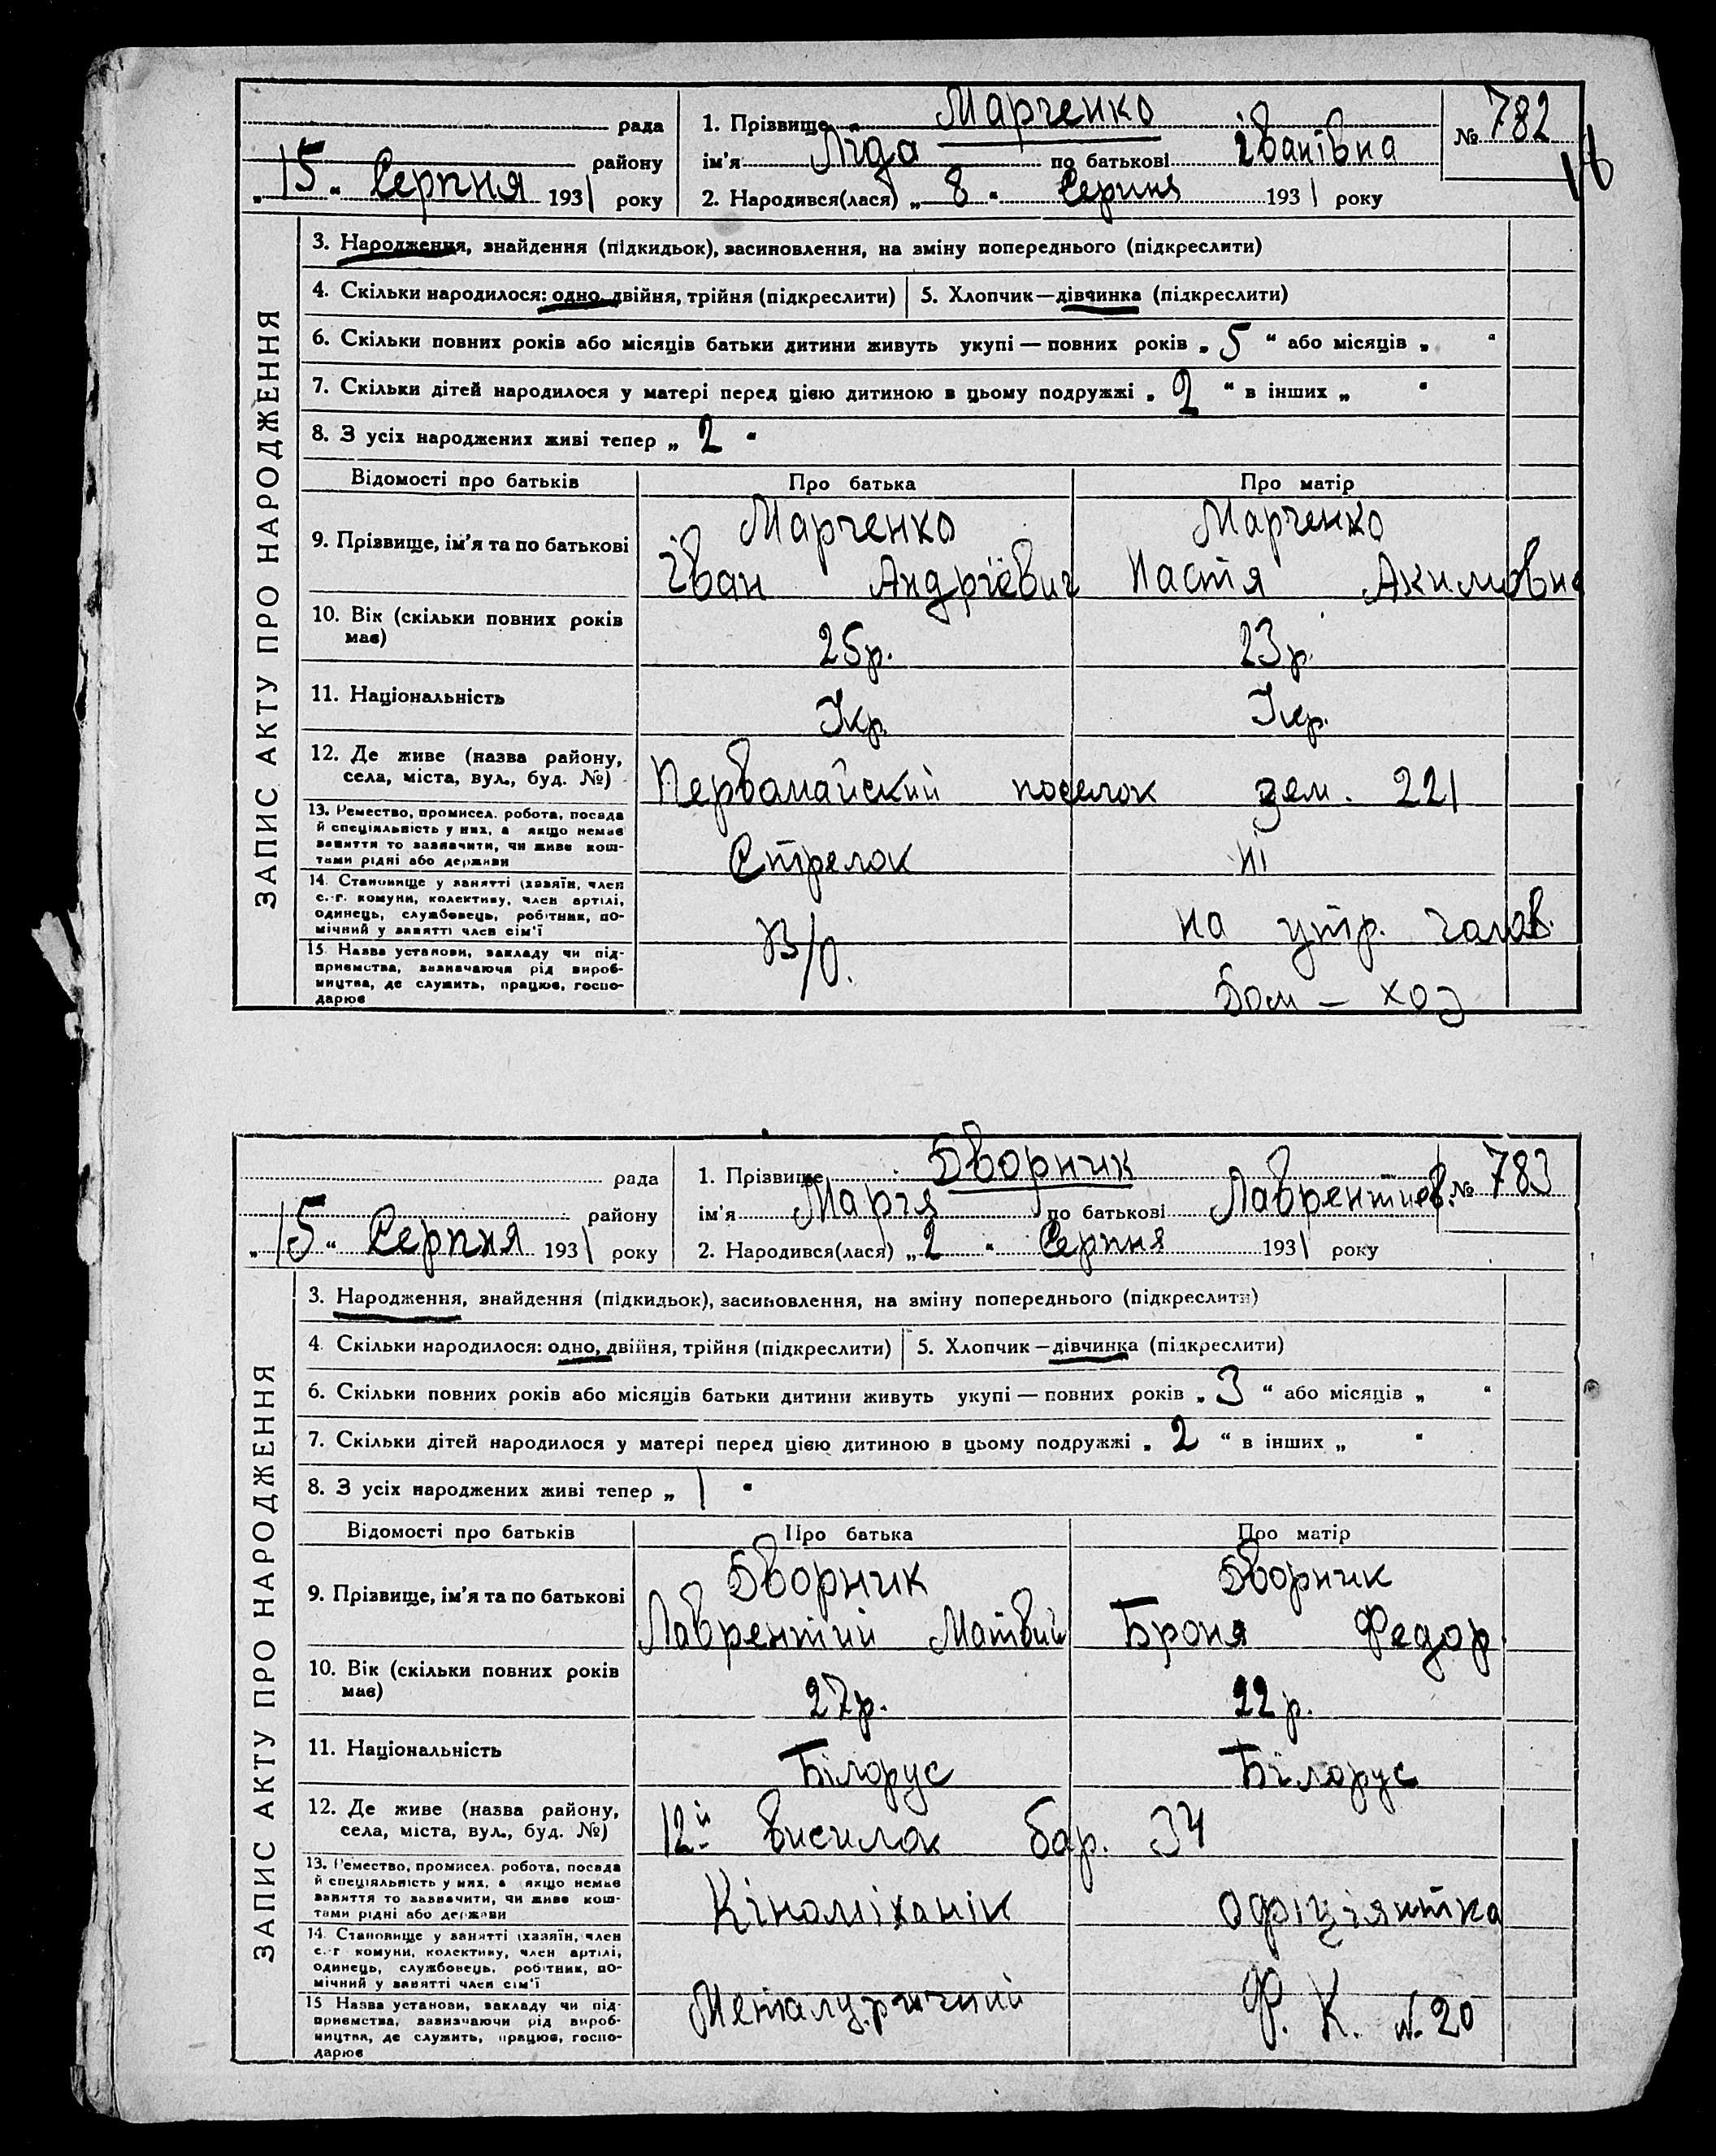 рада
району
„ 15 “ Серпня 1931 року
1. Прізвище Марченко
ім'я Ліда по батькові Іванівна
2. Народився(лася) „ 8 “ Серпня 1931 року
№ 782
ЗАПИС АКТУ ПРО НАРОДЖЕННЯ
3. Народження, знайдення (підкидьок), засиновлення, на зміну попереднього (підкреслити)
4. Скільки народилося: одно, двійня, трійня (підкреслити) 5. Хлопчик—дівчинка (підкреслити)
6. Скільки повних років або місяців батьки дитини живуть укупі — повних років „ 5 “ або місяців „ “
7. Скільки дітей народилося у матері перед цією дитиною в цьому подружжі „ 2 “ в інших „ “
8. З усіх народжених живі тепер „ 2 “
Відомості про батьків Про батька Про матір
9. Прізвище, ім'я та по батькові
Марченко
Іван Андрієвич
Марченко
Настя Акимовна
10. Вік (скільки повних років
має)
25р. 23р.
11. Національність Укр. Укр.
12. Де живе (назва району,
села, міста, вул., буд. №)
Первомайский поселок зем. 221
13. Ремество, промисел. робота, посада
й спеціяльність у них, а якщо немає
заняття то зазначити, чи живе кош-
тами рідні або держави
Стрелок ні
14. Становище у занятті (хазяїн, член
с.-г. комуни, колективу, член артілі,
одинець, службовець, робітник, по-
мічний у занятті член сім'ї
на утр. галов.
15. Назва установи, закладу чи під-
приємства, зазначаючи рід вироб-
ництва, де служить, працює, госпо-
дарює
В/О.
Дом — хоз
рада
району
„ 15 “ Серпня 1931 року
1. Прізвище Дворник
ім'я Марія по батькові Лаврентиев.
2. Народився(лася) „ 2 “ Серпня 1931 року
№ 783
ЗАПИС АКТУ ПРО НАРОДЖЕННЯ
3. Народження, знайдення (підкидьок), засиновлення, на зміну попереднього (підкреслити)
4. Скільки народилося: одно, двійня, трійня (підкреслити) 5. Хлопчик—дівчинка (підкреслити)
6. Скільки повних років або місяців батьки дитини живуть укупі — повних років „ 3 “ або місяців „ “
7. Скільки дітей народилося у матері перед цією дитиною в цьому подружжі „ 2 “ в інших „ “
8. З усіх народжених живі тепер „ 1 “
Відомості про батьків Про батька Про матір
9. Прізвище, ім'я та по батькові
Дворник
Лаврентий Матвий
Дворник
Броня Федор.
10. Вік (скільки повних років
має)
27р. 22р.
11. Національність Білорус Білорус
12. Де живе (назва району,
села, міста, вул., буд. №)
12й висилок бар. 34
13. Ремество, промисел. робота, посада
й спеціяльність у них, а якщо немає
заняття то зазначити, чи живе кош-
тами рідні або держави
Кіноміханік офіціянтка
14. Становище у занятті (хазяїн, член
с.-г. комуни, колективу, член артілі,
одинець, службовець, робітник, по-
мічний у занятті член сім'ї
15. Назва установи, закладу чи під-
приємства, зазначаючи рід вироб-
ництва, де служить, працює, госпо-
дарює
Металургичний Ф. К. №20